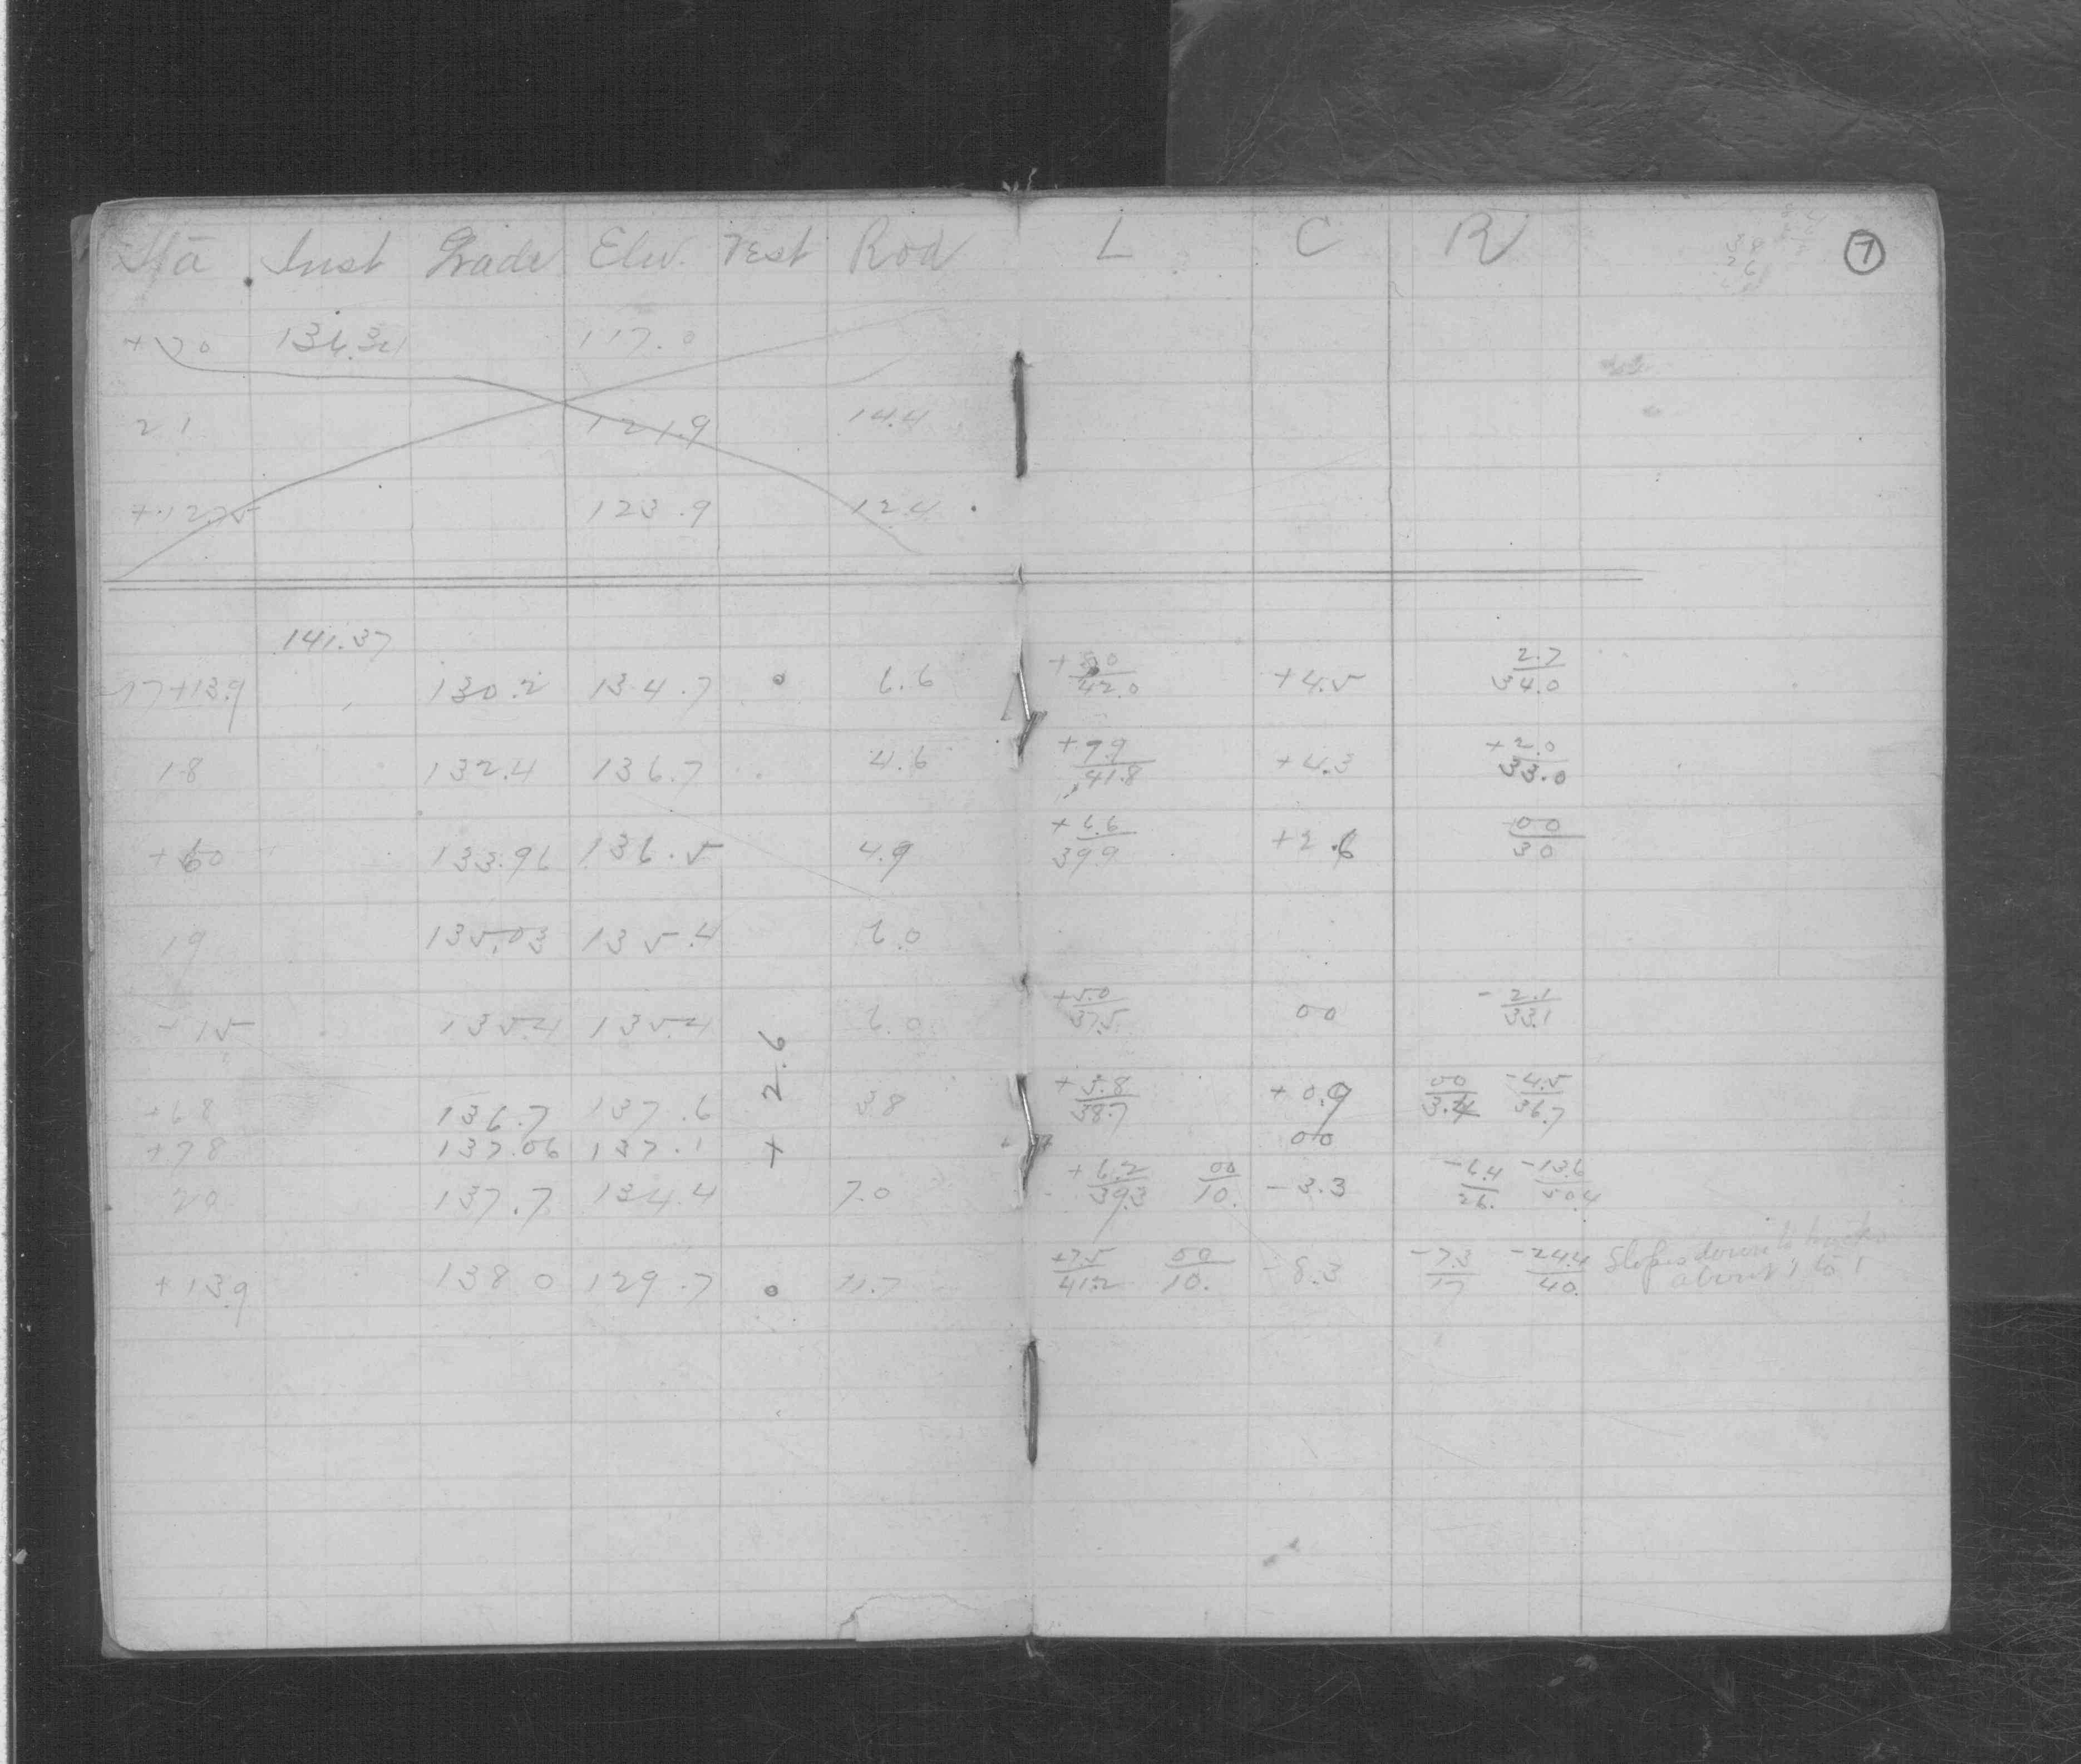 Sta Inst Grade Elev. Vert Rod L C R 7
+70 136.34 117.0
21 121.9 14.4
+12.75 123.9 12.4
141.37
17+13.9 130.2 134.7 6.6 +8.0/42.0 +4.5 2.7/34.0
18 132.4 136.7 4.6 +7.9/41.8 +4.3 +2.0/33.0
+60 133.96 136.5 4.9 +6.6/39.9 +2.6 00/30
19 135.03 135.4 6.0
+15 135.4 135.4 6.0 +5.0/37.5 00 -2.1/33.1
+2.6
+68 136.7 137.6 3.8 +5.8/38.7 +0.9 00/3.4 -4.5/36.7
+78 137.06 137.1 00
20 137.7 134.4 7.0 +6.2/39.3 00/10. -3.3 -6.4/26. -13.6/50.4
+13.9 138.0 129.7 11.7 +7.5/41.2 00/10. -8.3 -7.3/17 -24.4/40. Slopes down to
about 1 to 1